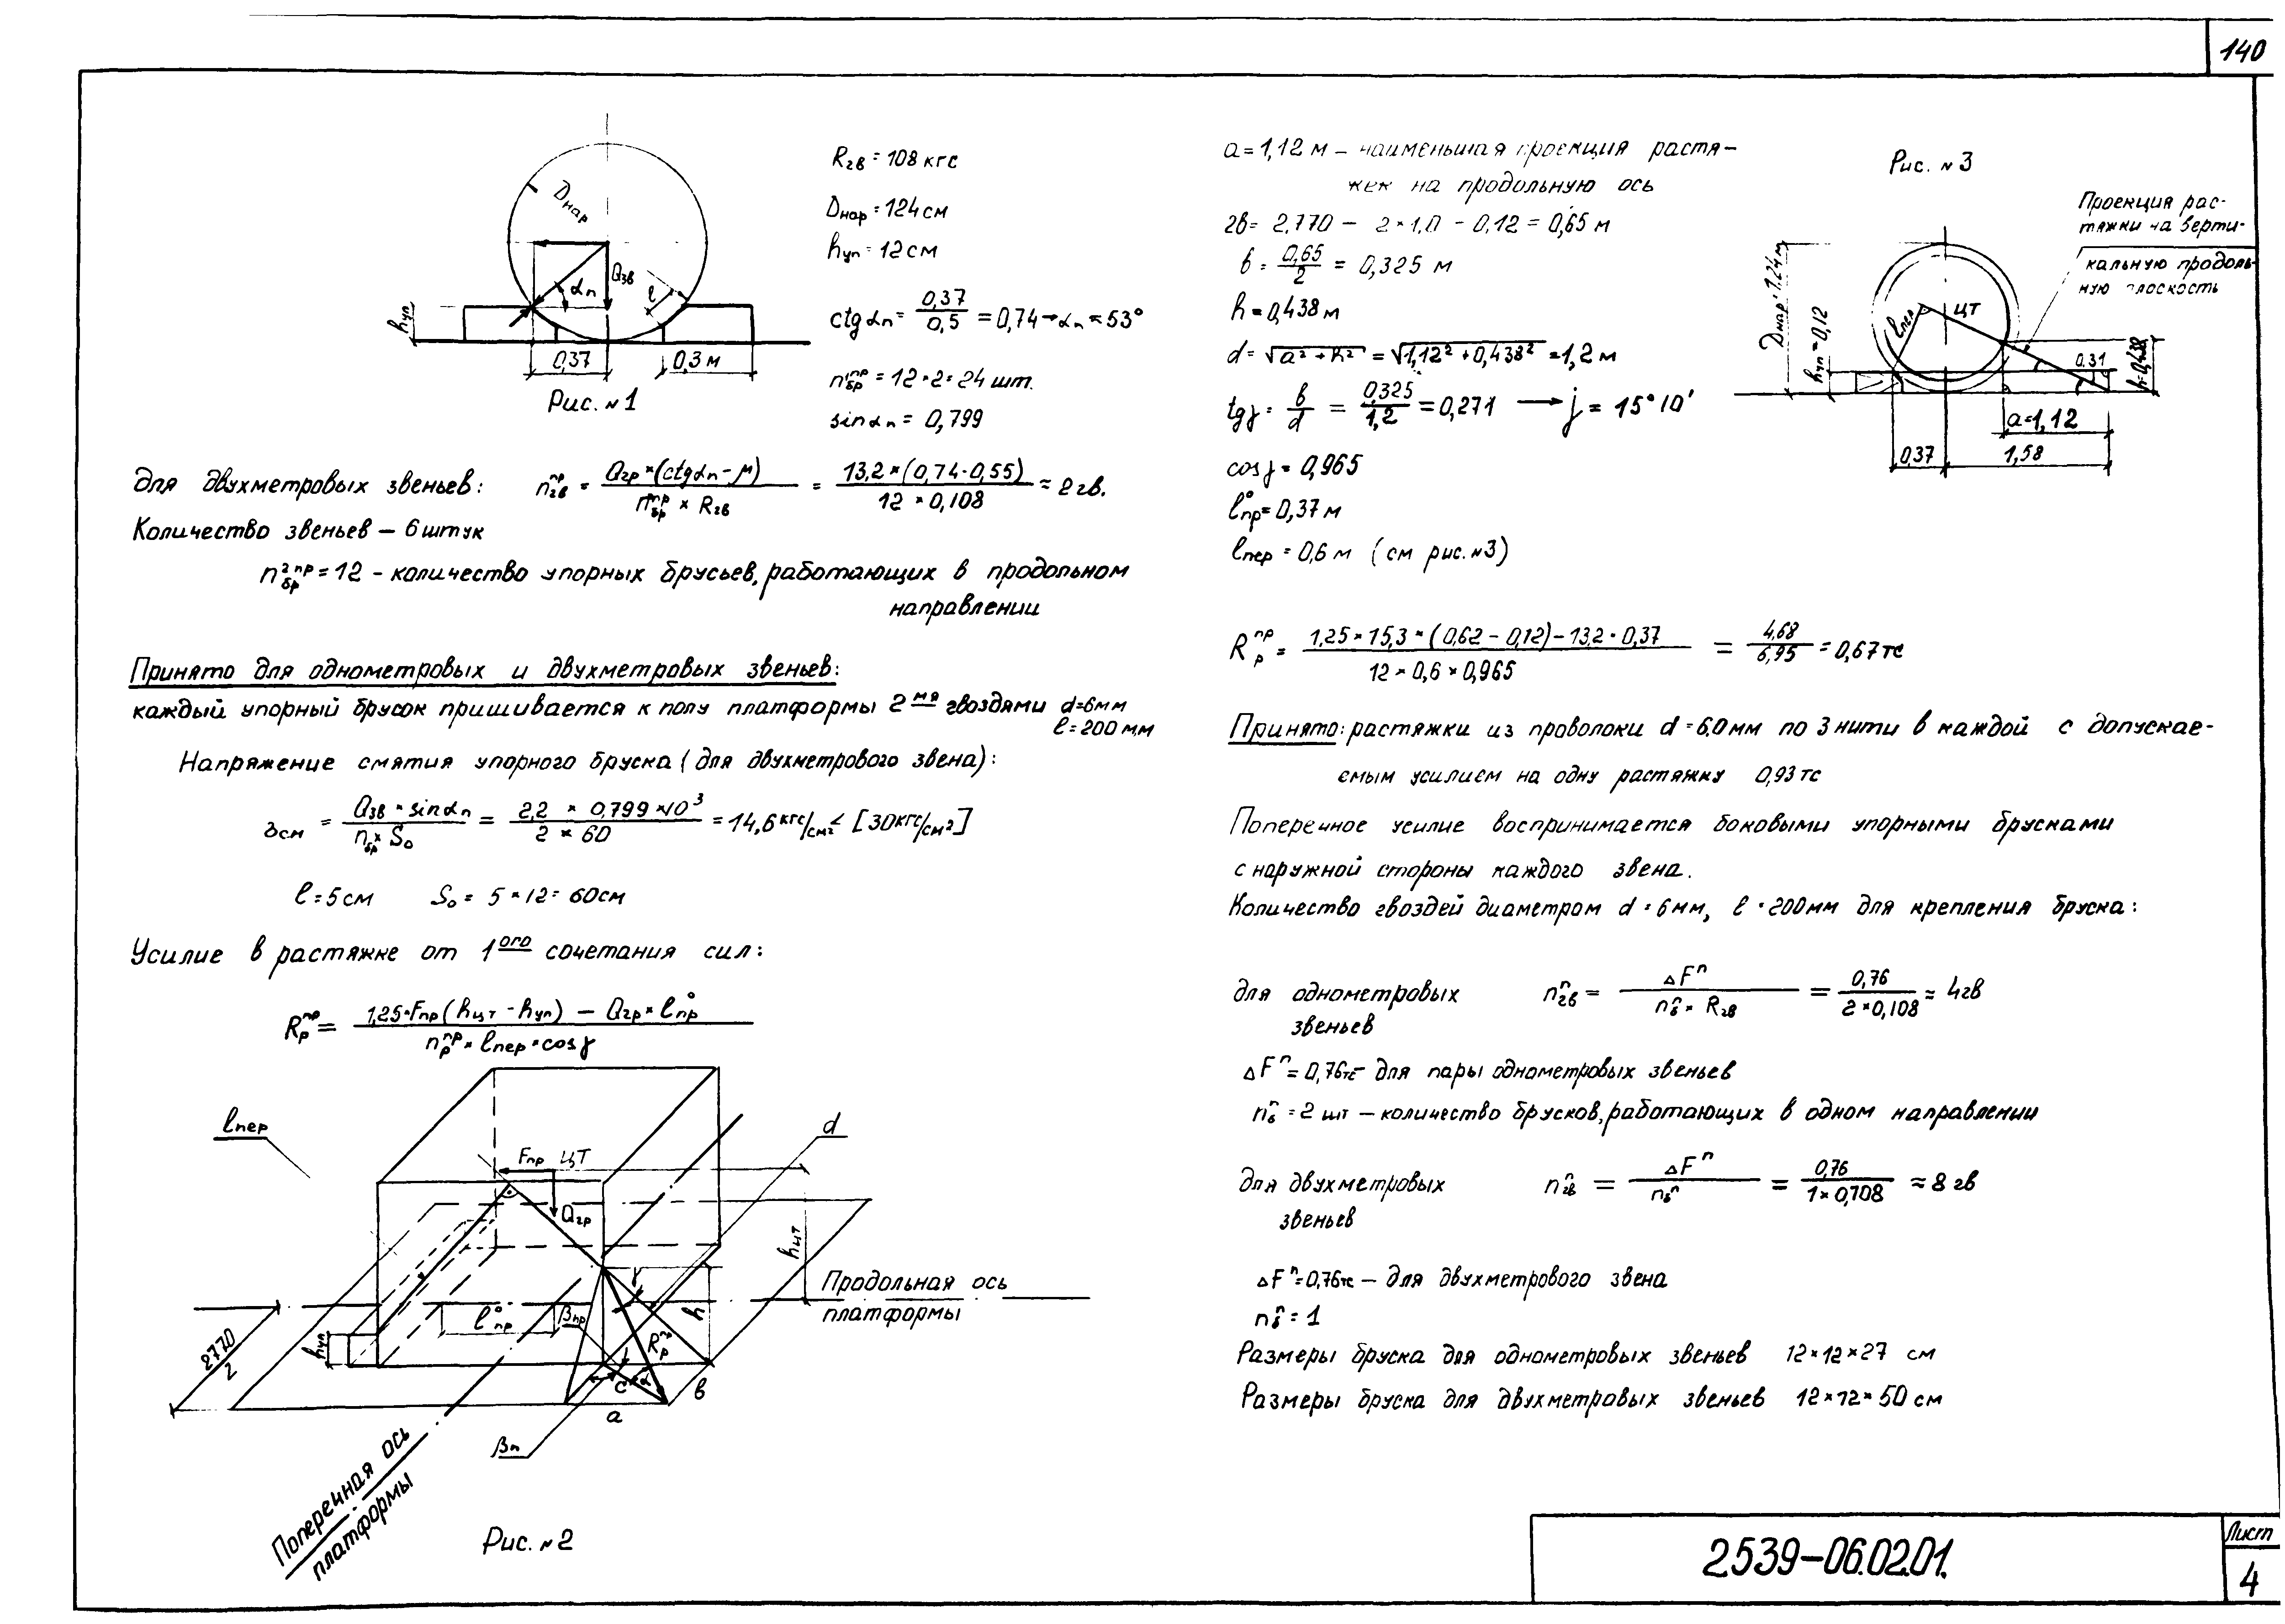 140
Dнар
Qзв
αп
l
hуп
0,37
0,3 м
Рис. №1
Rгв = 108 кгс
Dнар = 124 см
hуп = 12 см
ctg αп = 0,37 / 0,5 = 0,74 → αп ≈ 53°
n¹ᵖᵖбр = 12 × 2 = 24 шт.
sin αп = 0,799
Для двухметровых звеньев: nᵖʳгв = Qгр × (ctg αп - μ) / nᵖʳбр × Rгв = 13,2 × (0,74 - 0,55) / 12 × 0,108 ≈ 2 гв.
Количество звеньев – 6 штук
n² ᵖʳбр = 12 - количество упорных брусьев, работающих в продольном
направлении
Принято для однометровых и двухметровых звеньев:
каждый упорный брусок пришивается к полу платформы 2мя гвоздями d=6мм
l=200 мм
Напряжение смятия упорного бруска (для двухметрового звена):
σсм = Qзв × sin αп / nбр × S₀ = 2,2 × 0,799 × 10³ / 2 × 60 = 14,6 кгс/см² < [30 кгс/см²]
l = 5 см S₀ = 5 × 12 = 60 см
Усилие в растяжке от 1ого сочетания сил:
Rпрр = 1,25 × Fпр (hцт - hуп) – Qгр × l°пр / nпрр × lпер × cos γ
lпер
d
Fпр ЦТ
Qгр
hцт
Продольная ось
платформы
l°пр
βпр
h
Rпрр
hуп
2770 / 2
c
α
в
a
βп
Поперечная ось
платформы
Рис. №2
a = 1,12 м – наименьшая проекция растя-
жек на продольную ось
2в = 2,770 – 2 × 1,0 – 0,12 = 0,65 м
в = 0,65 / 2 = 0,325 м
h = 0,438 м
d = √a² + h² = √1,12² + 0,438² = 1,2 м
tg γ = в / d = 0,325 / 1,2 = 0,271 → γ = 15°10'
cos γ = 0,965
l°пр = 0,37 м
lпер = 0,6 м (см рис. №3)
Рис. №3
Проекция рас-
тяжки на верти-
кальную продоль-
ную плоскость
Dнар = 1,24 м
hуп = 0,12
lпер
ЦТ
0,31
h=0,438
a=1,12
0,37
1,58
Rпрр = 1,25 × 15,3 × (0,62 – 0,12) – 13,2 × 0,37 / 12 × 0,6 × 0,965 = 4,68 / 6,95 = 0,67 тс
Принято: растяжки из проволоки d = 6,0 мм по 3 нити в каждой с допускае-
емым усилием на одну растяжку 0,93 тс
Поперечное усилие воспринимается боковыми упорными брусками
с наружной стороны каждого звена.
Количество гвоздей диаметром d = 6 мм, l = 200 мм для крепления бруска:
для однометровых nпгв = ΔFп / nпб × Rгв = 0,76 / 2 × 0,108 ≈ 4 гв
звеньев
ΔFп = 0,76тс – для пары однометровых звеньев
nпб = 2 шт – количество брусков, работающих в одном направлении
для двухметровых nпгв = ΔFп / nбп = 0,76 / 1 × 0,108 ≈ 8 гв
звеньев
ΔFп = 0,76тс – для двухметрового звена
nпб = 1
Размеры бруска для однометровых звеньев 12×12×27 см
Размеры бруска для двухметровых звеньев 12×12×50 см
2539–06.02.01.
Лист
4